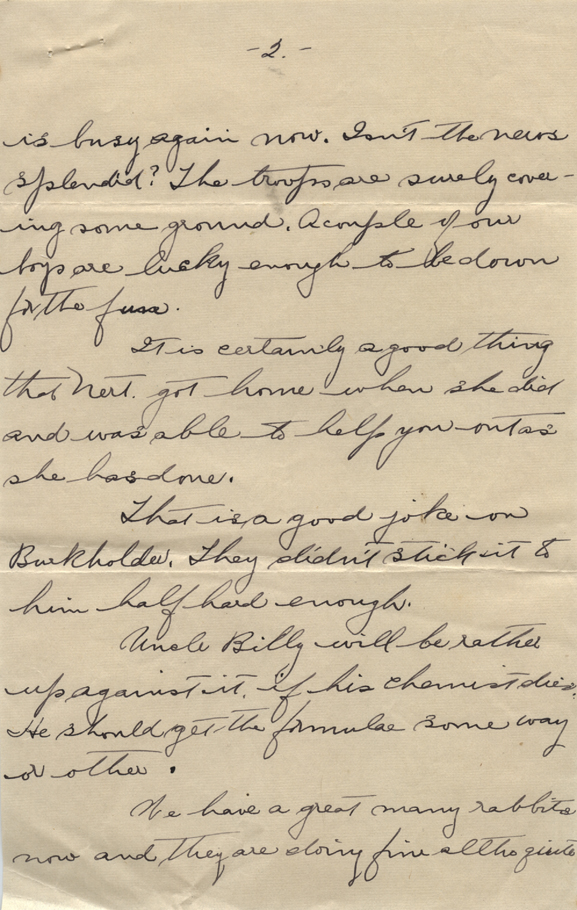 -2.-
is busy again now. Isn't the news
splendid? The troops are surely cover-
ing some ground. A couple of our
boys are lucky enough to be down
for the fuss.
It is certainly a good thing
that Nert. got home when she did
and was able to help you out as
she has done.
That is a good joke on
Burkholder. They didn't stick it to
him half hard enough.
Uncle Billy will be rather
up against it, if his chemist dies.
He should get the formulae some way
or other.
We have a great many rabbits
now and they are doing fine altho quite